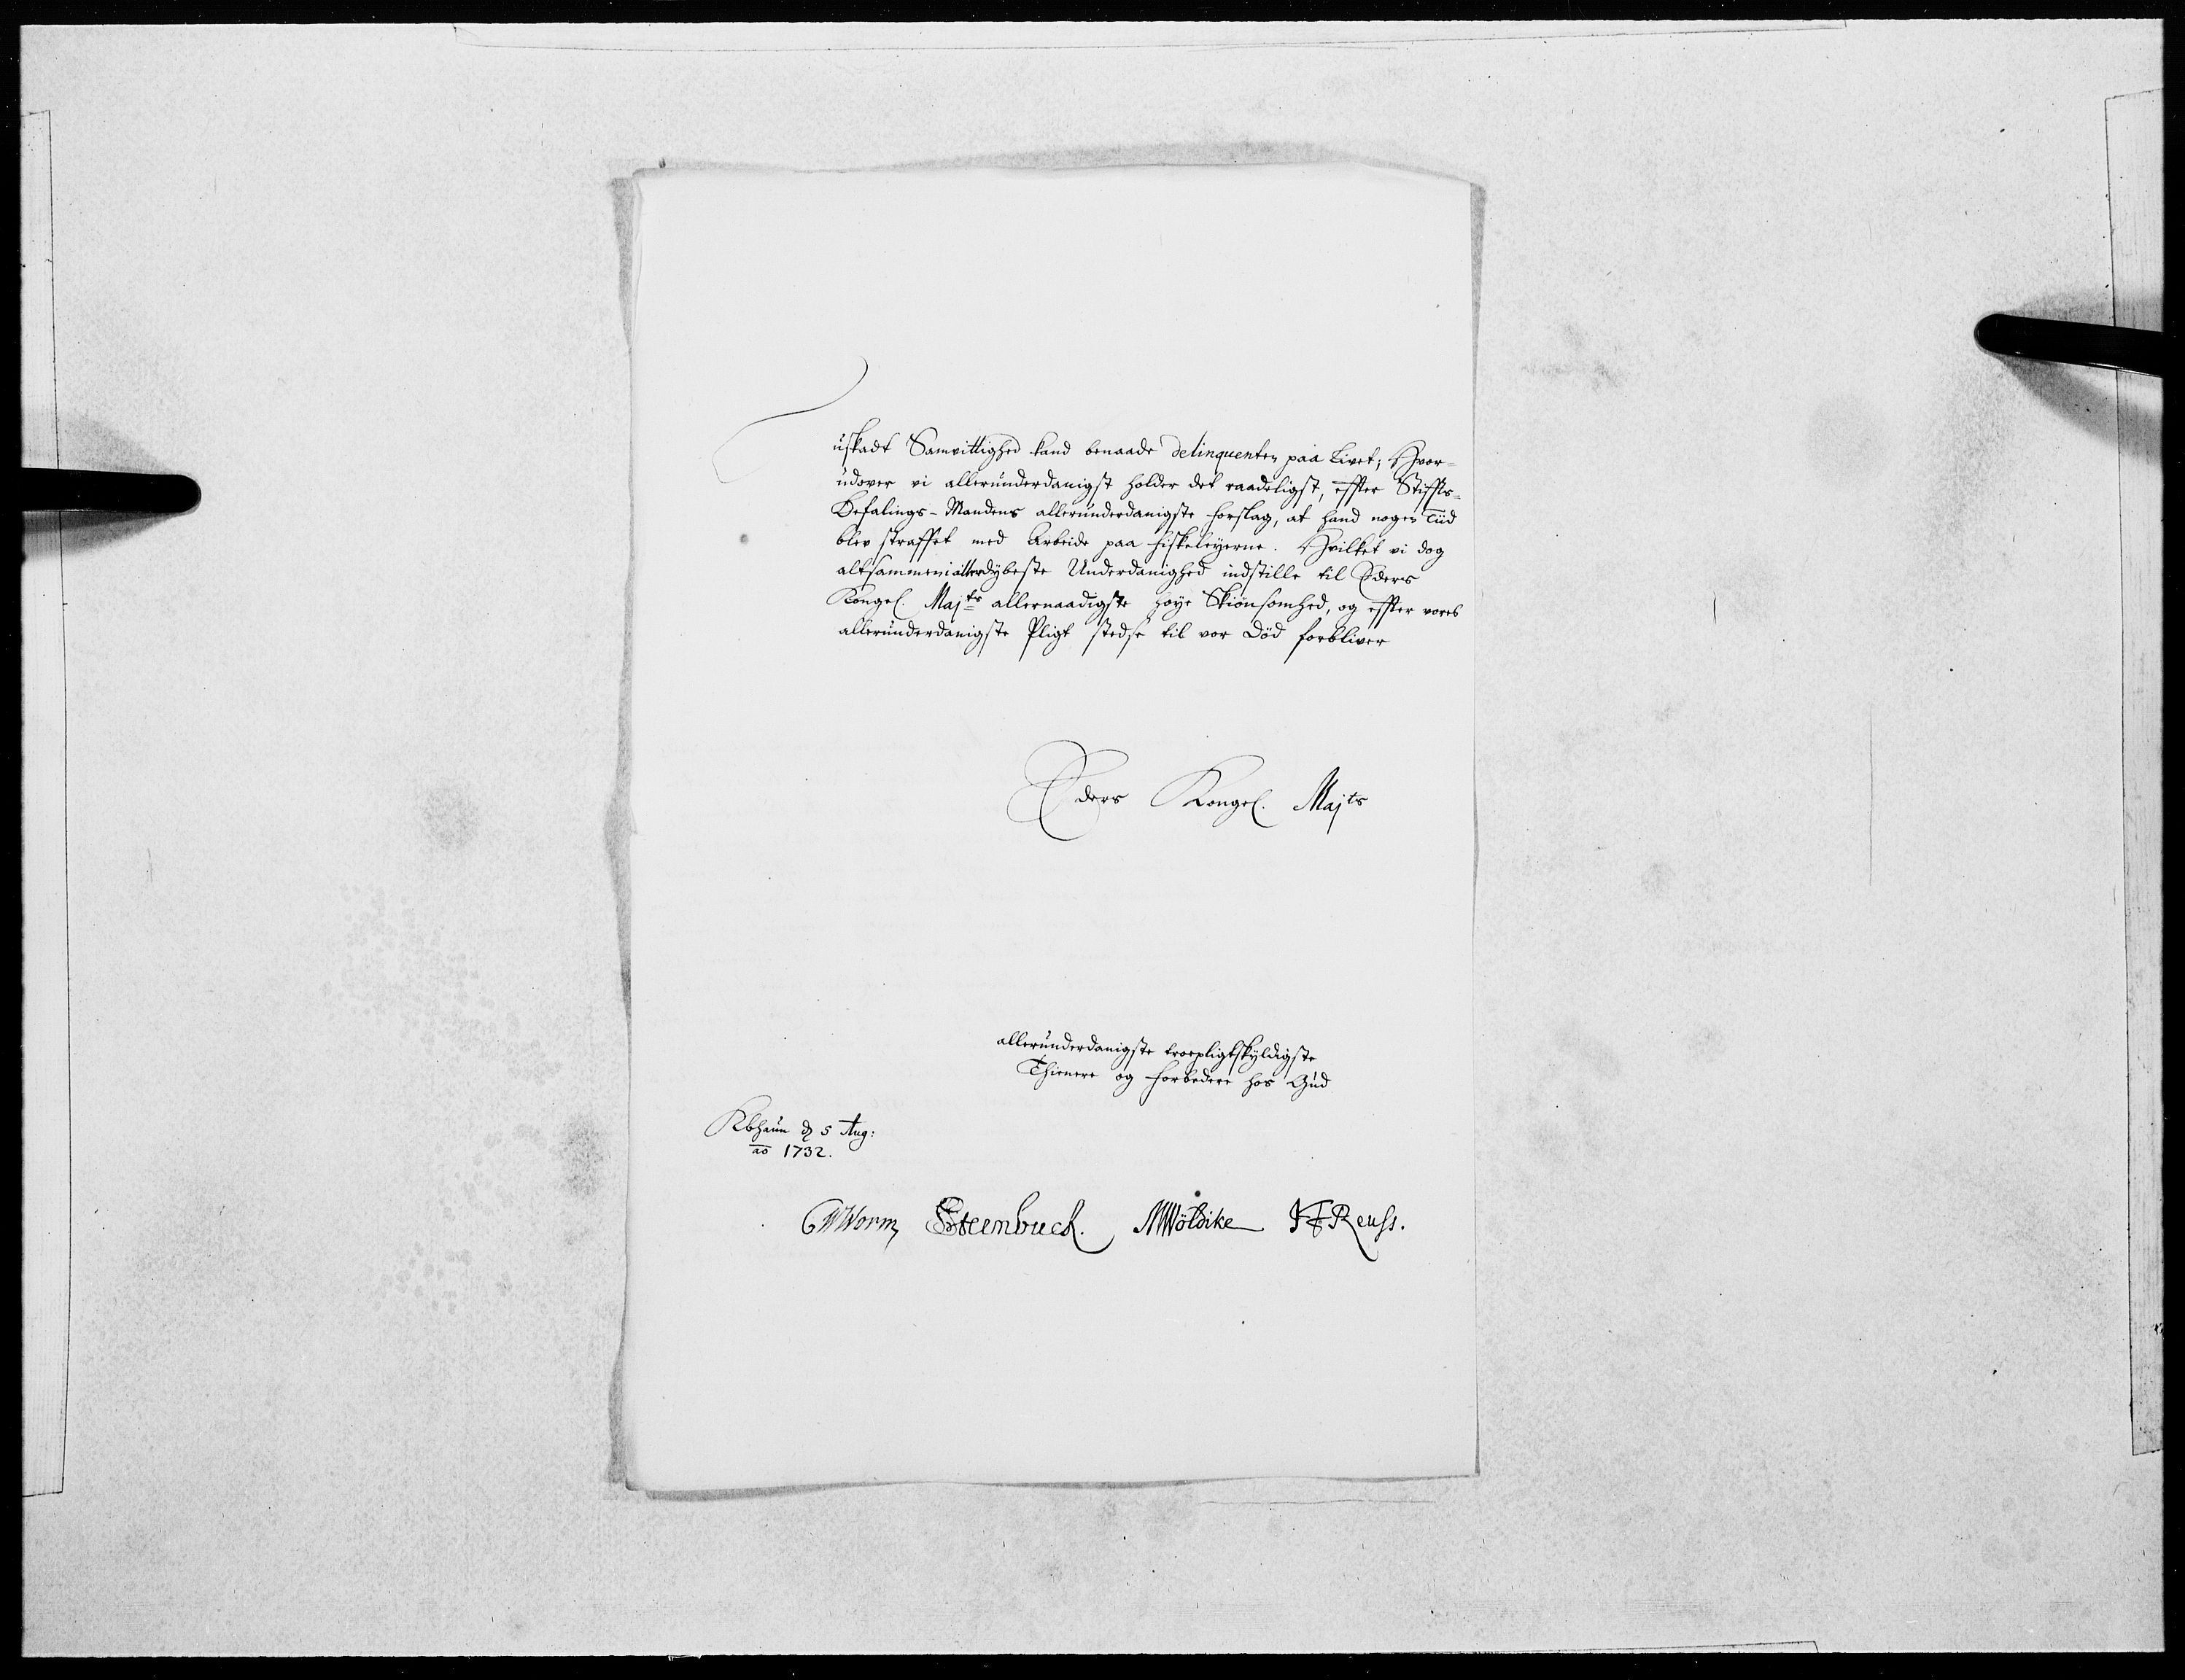 uskadt Samvittighed kand benaade delinquenten paa Livet; Hvor-
udover vi allerunderdanigst holder det raadeligst, effter Stiffts-
Befalings-Mandens allerunderdanigste forslag, at hand nogen Tiid
blev straffet med Arbeide paa fiskeleyerne. Hvilket vi dog
altsammen i allerdybeste Underdanighed indstille til Eders
Kongel. Majts allernaadigste høye Skiønsomhed, og effter vores
allerunderdanigste Pligt stedse til vor Død forbliver
Eders Kongel. Majts
allerunderdanigste troepligtskyldigste
Thienere og forbedere hos Gud
Kbhaun d 5 Aug:
ao 1732.
CWWorm Steenbuch. MWöldike Reuss.